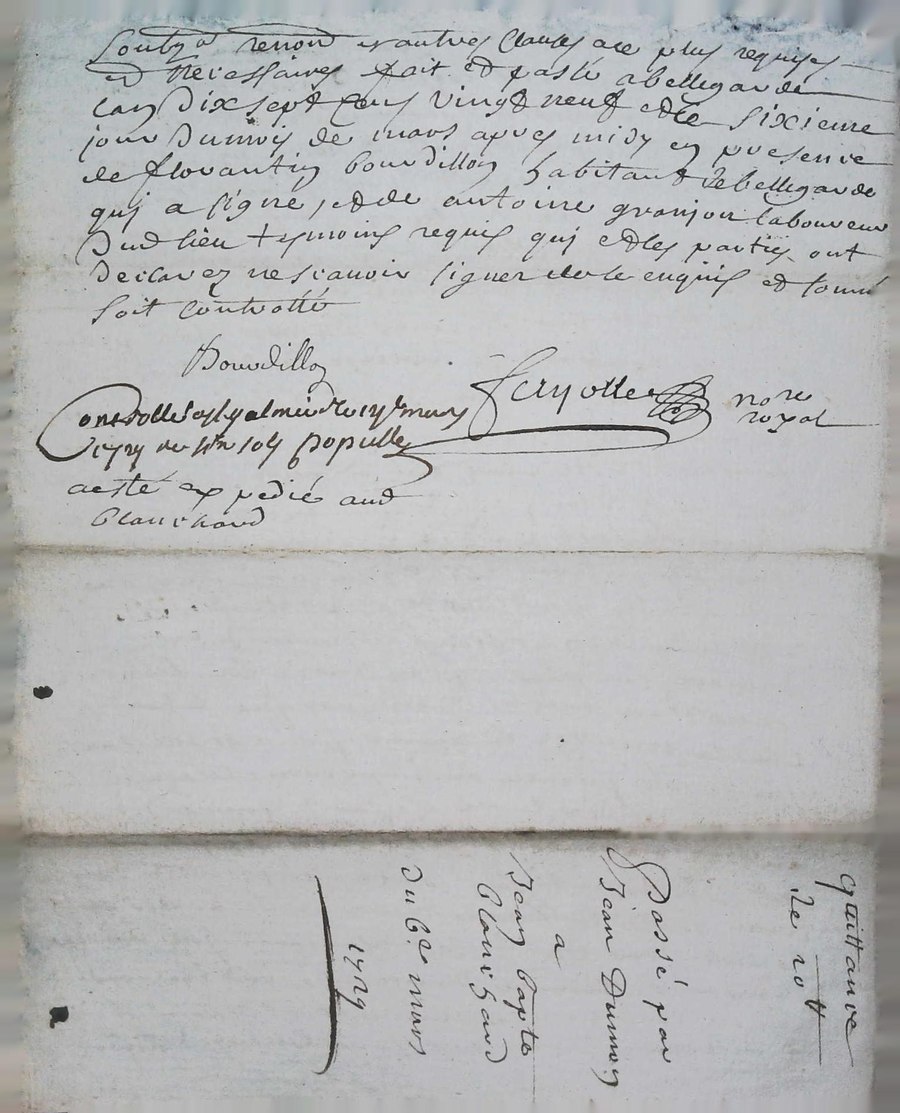 renon et autres clauses ace plus requises
et necessaires fait et passé a bellegarde
lan dix sept cens vingt neuf et le sixieme
jour dumois de mars apres midy en presence
de florantin bourdillon habitant de bellegarde
qui a signé, et de antoine granjon laboureur
dud lieu tesmoins requis qui et les parties ont
declarez ne scavoir signer de ce enquis et
soit controllé
Bourdillon
ferjolle nore
royal
Controllé a st galmier le 17e mars
1729 populle
aesté expedié aud
blanchard
quittance
de 20 tt
Passé par
Jean Dumoy
a
Jean bapte
blanchard
du 6e mars
1729